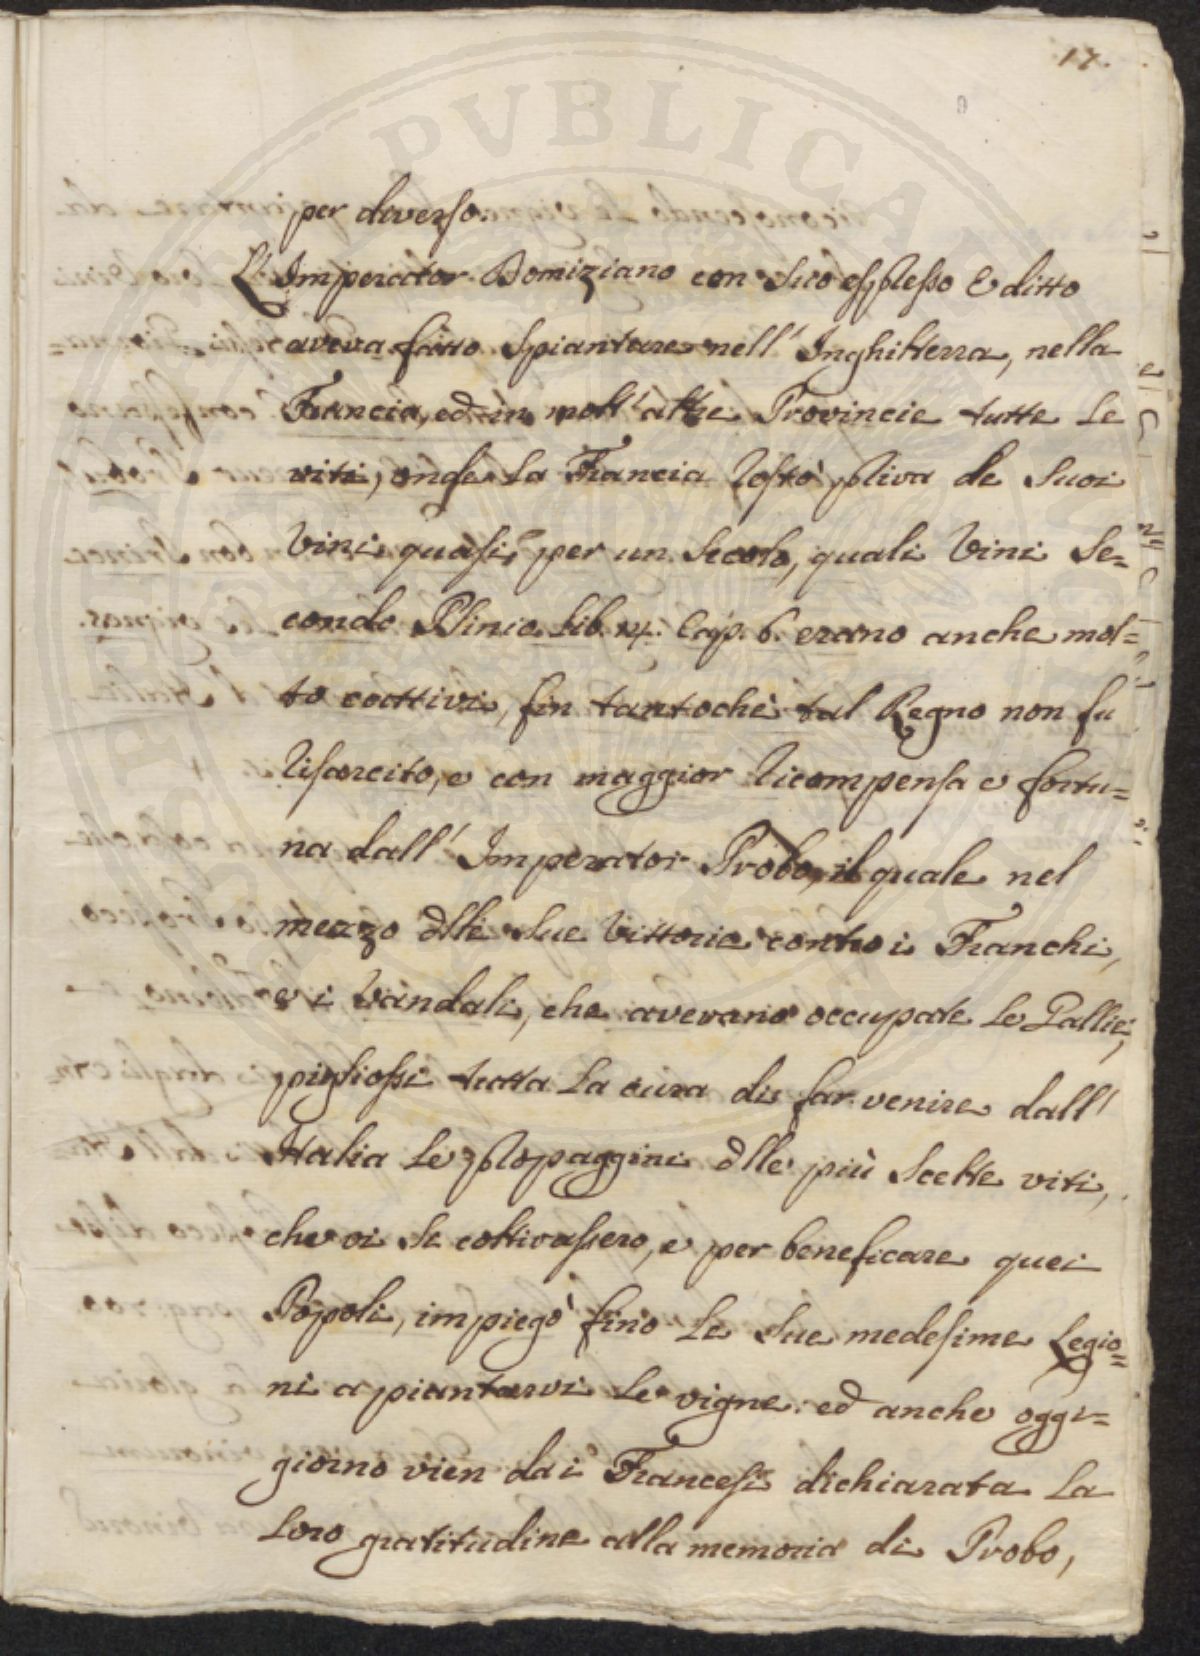 17.
per diverso.
L'Imperator Domiziano con suo espresso Editto
aveva fatto spiantare nell' Inghilterra, nella
Francia, ed in molt'altre Provincie tutte le
viti, onde la Francia restò priva de suoi
Vini quasi per un secolo, quali Vini se=
condo Plinio lib. 14. Cap. 6. erano anche mol=
to cattivi, fin tantochè tal Regno non fu
risarcito, e con maggior ricompensa e fortu=
na dall' Imperator Probo, il quale nel
mezzo dlle sue Vittorie contro i Franchi,
e i Vandali, che avevano occupate le Gallie,
pigliossi tutta la cura di far venire dall'
Italia le propaggini dlle più scelte viti,
che vi si coltivassero, e per beneficare quei
Popoli, impiegò fino le sue medesime Legio=
ni a piantarvi le vigne: ed anche oggi=
giorno vien dai Francesi dichiarata la
loro gratitudine alla memoria di Probo,
PVBLICAE